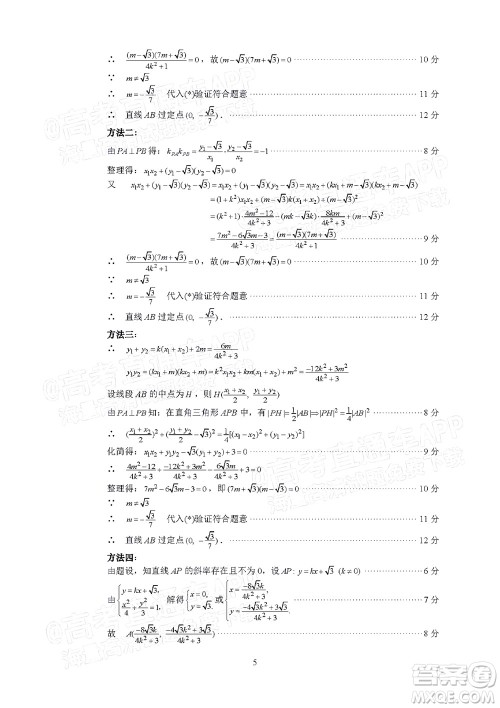 ∴ (m−√3)(7m+√3)/(4k²+1)=0，故(m−√3)(7m+√3)=0 ⋯⋯ 10 分
∵ m≠√3
∴ m=−√3/7 代入(*)验证符合题意 ⋯⋯ 11 分
∴ 直线 AB 过定点(0, −√3/7)． ⋯⋯ 12 分
方法二：
由PA⊥PB得：k_PA k_PB=(y₁−√3)/x₁·(y₂−√3)/x₂=−1 ⋯⋯ 8 分
整理得：x₁x₂+(y₁−√3)(y₂−√3)=0
又 x₁x₂+(y₁−√3)(y₂−√3)=x₁x₂+(kx₁+m−√3)(kx₂+m−√3)
=(1+k²)x₁x₂+(mk−√3k)(x₁+x₂)+(m−√3)²
=(k²+1)·(4m²−12)/(4k²+3)−(mk−√3k)·8km/(4k²+3)+(m−√3)²
=(7m²−6√3m−3)/(4k²+3)=(m−√3)(7m+√3)/(4k²+1) ⋯⋯ 9 分
∴ (m−√3)(7m+√3)/(4k²+1)=0，故(m−√3)(7m+√3)=0 ⋯⋯ 10 分
∵ m≠√3
∴ m=−√3/7 代入(*)验证符合题意 ⋯⋯ 11 分
∴ 直线 AB 过定点(0, −√3/7)． ⋯⋯ 12 分
方法三：
∴ y₁+y₂=k(x₁+x₂)+2m=6m/(4k²+3)
y₁y₂=(kx₁+m)(kx₂+m)=k²x₁x₂+km(x₁+x₂)+m²=(−12k²+3m²)/(4k²+3)
设线段 AB 的中点为 H，则 H((x₁+x₂)/2, (y₁+y₂)/2)
由PA⊥PB知：在直角三角形 APB 中，有|PH|=1/2|AB|⇒|PH|²=1/4|AB|² ⋯⋯ 8 分
∴ ((x₁+x₂)/2)²+((y₁+y₂)/2−√3)²=1/4[(x₁−x₂)²+(y₁−y₂)²]
化简得：x₁x₂+y₁y₂−√3(y₁+y₂)+3=0 ⋯⋯ 9 分
∴ (4m²−12)/(4k²+3)+(−12k²+3m²)/(4k²+3)−6√3m/(4k²+3)+3=0
整理得：7m²−6√3m−3=0，即(7m+√3)(m−√3)=0 ⋯⋯ 10 分
∵ m≠√3
∴ m=−√3/7 代入(*)验证符合题意 ⋯⋯ 11 分
∴ 直线 AB 过定点(0, −√3/7)． ⋯⋯ 12 分
方法四：
由题设，知直线 AP 的斜率存在且不为 0，设 AP：y=kx+√3 (k≠0) ⋯⋯ 6 分
由{y=kx+√3, x²/4+y²/3=1. 解得{x=0, y=√3. 或{x=−8√3k/(4k²+3), y=(−4√3k²+3√3)/(4k²+3).
故 A(−8√3k/(4k²+3), (−4√3k²+3√3)/(4k²+3)) ⋯⋯ 8 分
5
答案圈
MXQE.COM